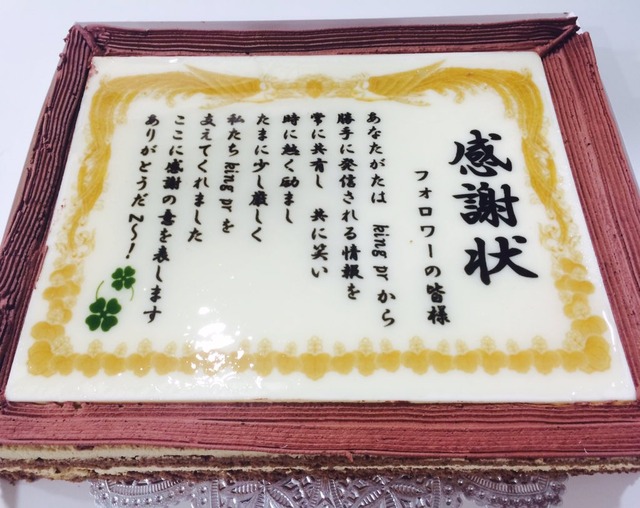 感謝状
フォロワーの皆様
あなたがたは king pr から
勝手に発信される情報を
常に共有し 共に笑い
時に熱く励まし
たまに少し厳しく
私たち king pr を
支えてくれました
ここに感謝の意を表します
ありがとうだZ〜!